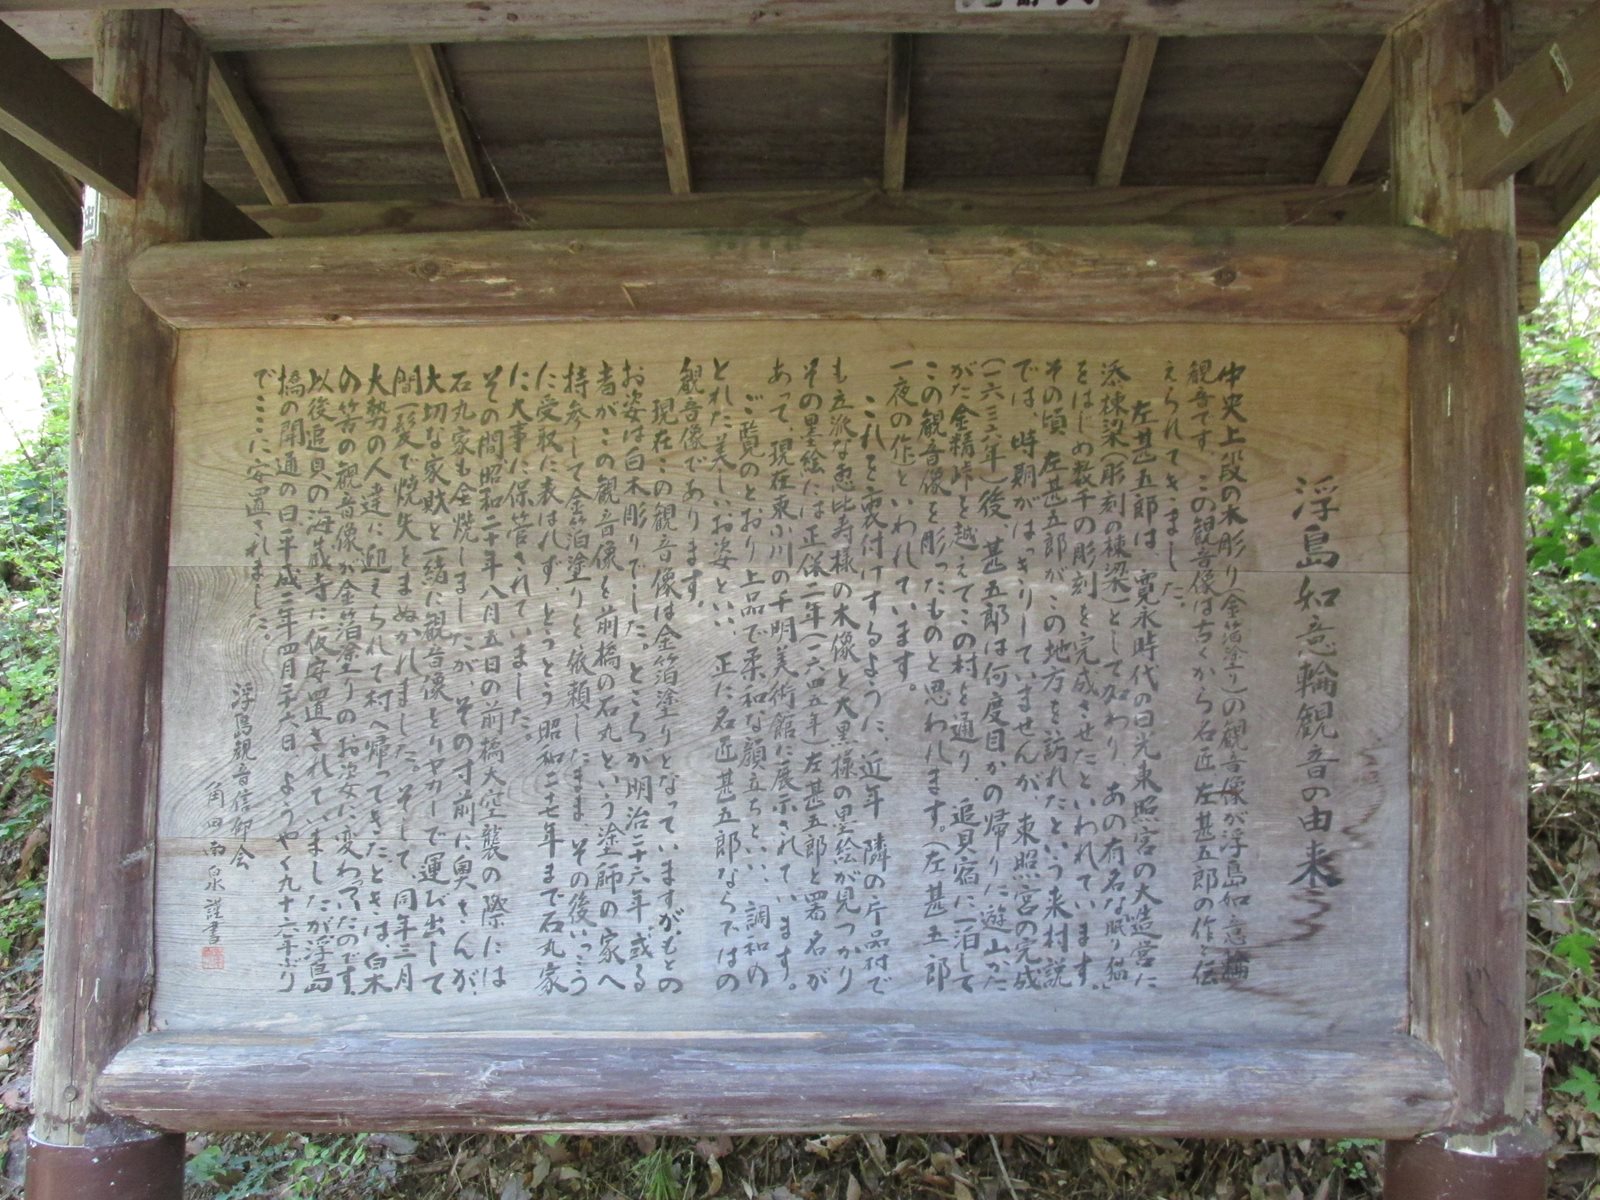 浮島如意輪観音の由来
中央上段の木彫り(金箔塗り)の観音像が浮島如意輪
観音です。この観音像は古くから名匠左甚五郎の作と伝
えられてきました。
左甚五郎は、寛永時代の日光東照宮の大造営に
添棟梁(彫刻の棟梁)として加わり、あの有名な眠り猫
をはじめ数千の彫刻を完成させたといわれています。
その頃、左甚五郎が、この地方を訪れたという来村説
では、時期がはっきりしていませんが、東照宮の完成
(一六三六年)後、甚五郎は何度目かの帰りに遊山かた
がた金精峠を越えてこの村を通り、追貝宿に一泊して
この観音像を彫ったものと思われます。(左甚五郎
一夜の作)といわれています。
これを裏付けするように、近年、隣の片品村で
も立派な恵比寿様の木像と大黒様の墨絵が見つかり
その墨絵には正保二年(一六四五年)左甚五郎と署名が
あって、現在東小川の千明美術館に展示されています。
ご覧のとおり上品で柔和な顔立ちといい、調和の
とれた美しいお姿といい、正に名匠甚五郎ならではの
観音像であります。
現在この観音像は金箔塗りとなっていますが、もとの
お姿は白木彫りでした。ところが明治二十六年、或る
者がこの観音像を前橋の石丸という塗師の家へ
持参して金箔塗りを依頼したまま、その後いっこう
に受取に表はれず、とうとう昭和二十七年まで石丸家
に大事に保管されていました。
その間昭和二十年八月五日の前橋大空襲の際には
石丸家も全焼しましたが、その寸前に奥さんが、
大切な家財と一緒に観音像をリヤカーで運び出して
間一髪で焼失をまぬかれました。そして、同年三月
大勢の人達に迎えられて村へ帰ってきたときは白木
の筈の観音像が金箔塗りのお姿に変わっていたのです。
以後追貝の海蔵寺に仮安置されていましたが浮島
橋の開通の日、平成二年四月二十六日、ようやく九十六年ぶり
でここに安置されました。
浮島観音信仰会
角田南泉謹書